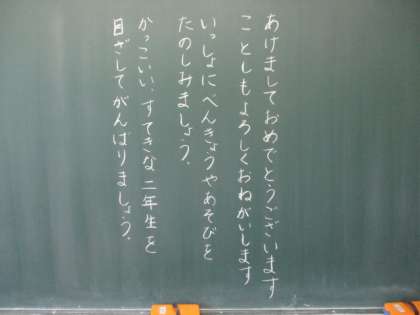 あけましておめでとうございます
ことしもよろしくおねがいします
いっしょにべんきょうやあそびを
たのしみましょう。
かっこいい、すてきな二年生を
目ざしてがんばりましょう。